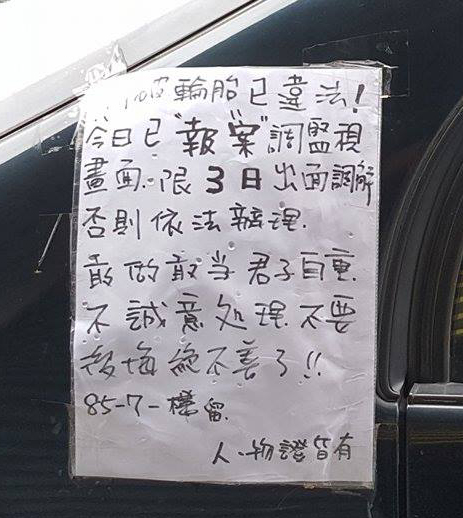 破輪胎已違法！
今日已"報案"調監視
畫面.限3日出面調解
否則依法辦理.
敢做敢当君子自重.
不誠意処理.不要
後悔絕不善了!!
85-7-樓留.
人.物證皆有